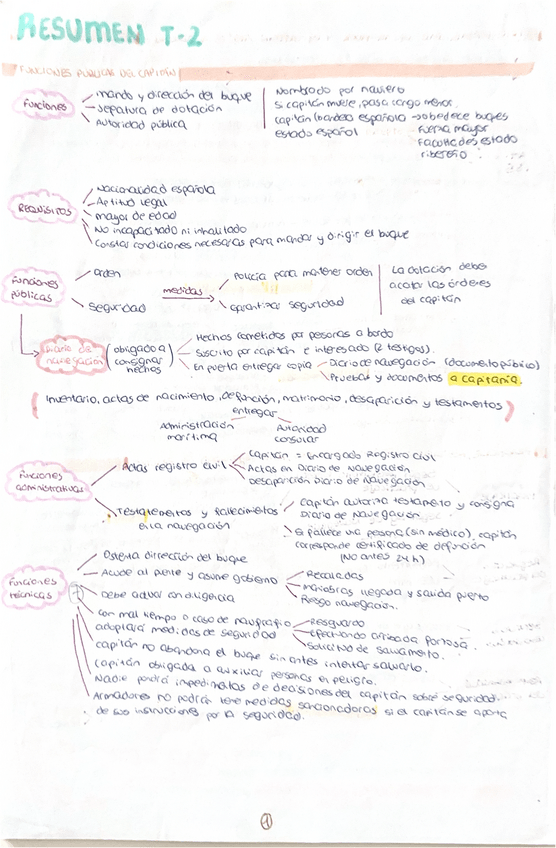 RESUMEN T-2
FUNCIONES PÚBLICAS DEL CAPITÁN
Funciones
mando y dirección del buque
Jefatura de dotación
Autoridad pública
Nombrado por naviero
Si capitán muere, pasa cargo menor.
capitán (bandera española → obedece buques
estado español
fuerza mayor
Facultades estado
ribereño
REQUISITOS
Nacionalidad española
Aptitud legal
mayor de edad
No incapacitado ni inhabilitado
Constar condiciones necesarias para mandar y dirigir el buque
Funciones
públicas
orden
Seguridad
medidas
policía para mantener orden
Garantizar seguridad
La dotación debe
acatar las órdenes
del capitán
Diario de
navegación
(obligado a
consignar
hechos)
Hechos cometidos por personas a bordo
Suscrito por capitán e interesado (2 testigos).
En puerto entregar copia
Diario de navegación (documento público)
Pruebas y documentos a capitanía.
(Inventario, actas de nacimiento, defunción, matrimonio, desaparición y testamentos)
entregar
Administración
marítima
Autoridad
consular
Funciones
administrativas
Actas registro civil
capitán = Encargado Registro civil
Actas en Diario de Navegación
Desaparición Diario de Navegación
Testamentos y fallecimientos
en la navegación
capitán autoriza testamento y consigna
Diario de Navegación
Si fallece una persona (sin médico), capitán
corresponde certificado de defunción
(No antes 24h)
Funciones
técnicas
Ostenta dirección del buque
Acude al puente y asume gobierno
Recaladas
Maniobras llegada y salida puerto
Riesgo navegación.
Debe actuar con diligencia
Con mal tiempo o caso de naufragio
adoptará medidas de seguridad
Resguardo
Efectuando arribada forzosa
Solicitud de salvamento.
capitán no abandona el buque sin antes intentar salvarlo.
capitán obligado a auxiliar personas en peligro.
Nadie podrá de decisiones del capitán sobre seguridad.
Armadores no podrán tener medidas sancionadoras si el capitán se aparta
de sus instrucciones por la seguridad.
1